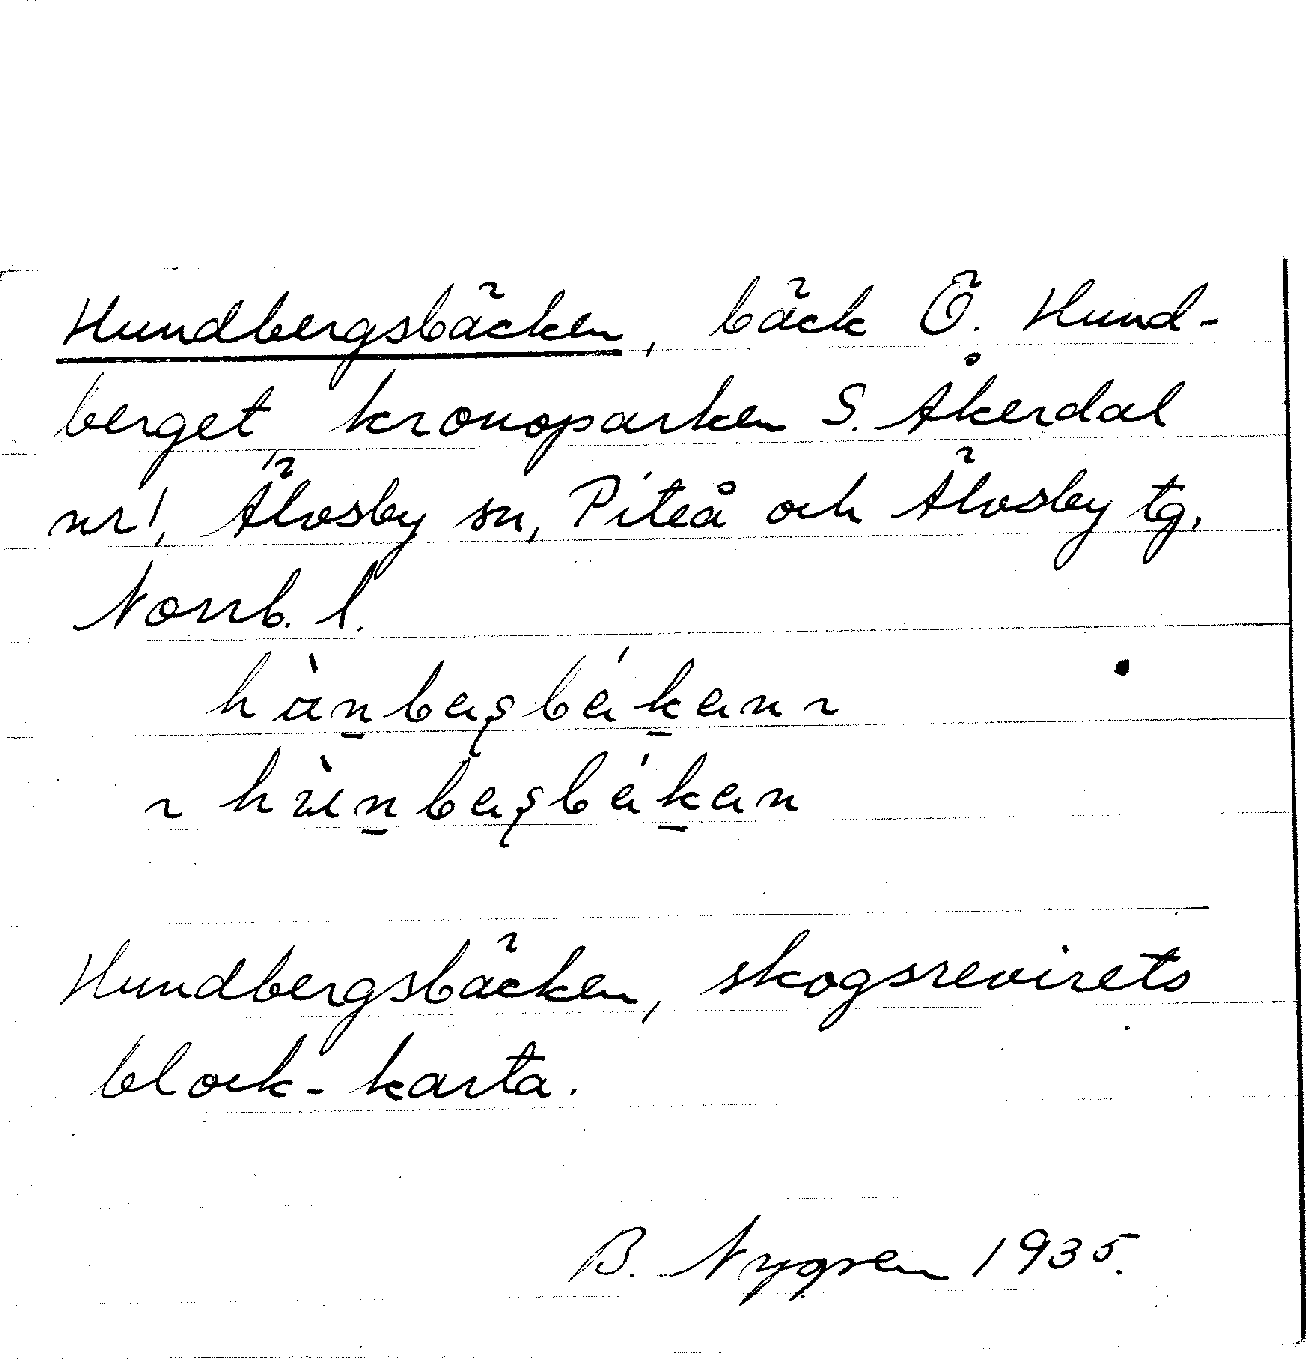 Hundbergsbäcken, bäck Ö. Hund-
berget, kronoparken S. Åkerdal
nr 1, Älvsby sn, Piteå och Älvsby tg.
Norrb. l.
Hundbergsbäcken, skogsrevirets
block-karta.
B. Nygren 1935.